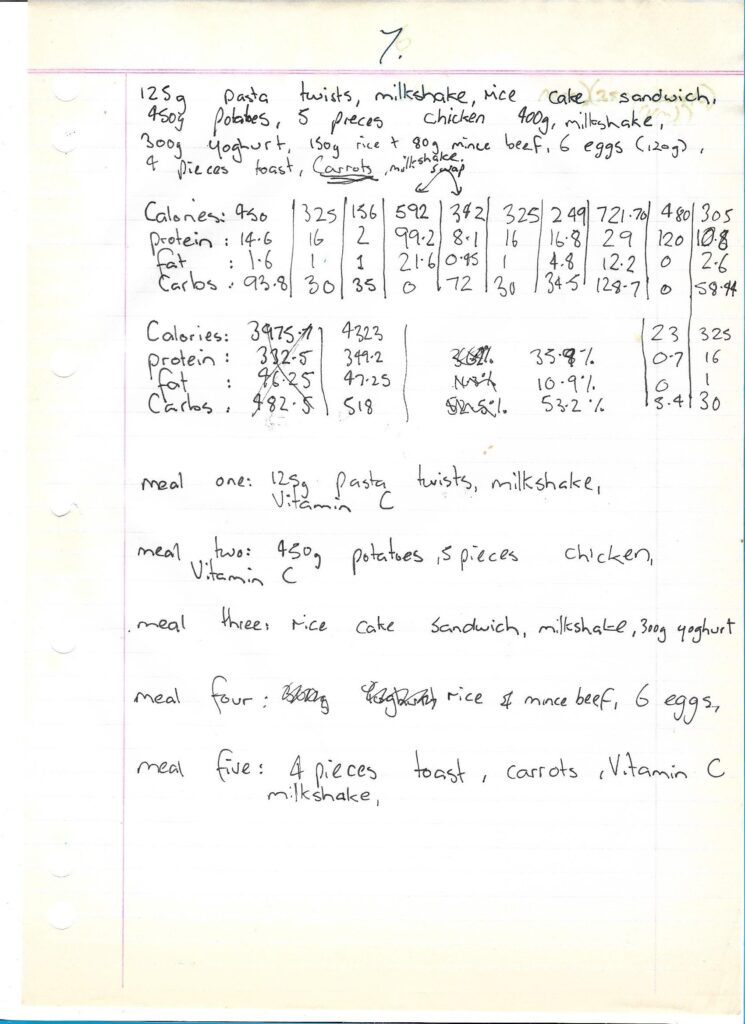 7.
125g pasta twists, milkshake, rice cake sandwich,
450g potatoes, 5 pieces chicken 400g, milkshake,
300g yoghurt, 150g rice + 80g mince beef, 6 eggs (120g),
4 pieces toast, Carrots, milkshake.
swap
Calories: 450 325 156 592 342 325 249 721.70 480 305
protein: 14.6 16 2 99.2 8.1 16 16.8 29 120 10.8
fat: 1.6 1 1 21.6 0.45 1 4.8 12.2 0 2.6
Carbs: 93.8 30 35 0 72 30 34.5 128.7 0 58.44
Calories: 3975.7 4323 23 325
protein: 332.5 349.2 35.9% 0.7 16
fat: 46.25 47.25 10.9% 0 1
Carbs: 482.5 518 53.2% 5.4 30
meal one: 125g pasta twists, milkshake,
Vitamin C
meal two: 450g potatoes, 5 pieces chicken,
Vitamin C
meal three: rice cake sandwich, milkshake, 300g yoghurt
meal four: rice & mince beef, 6 eggs,
meal five: 4 pieces toast, carrots, Vitamin C
milkshake,